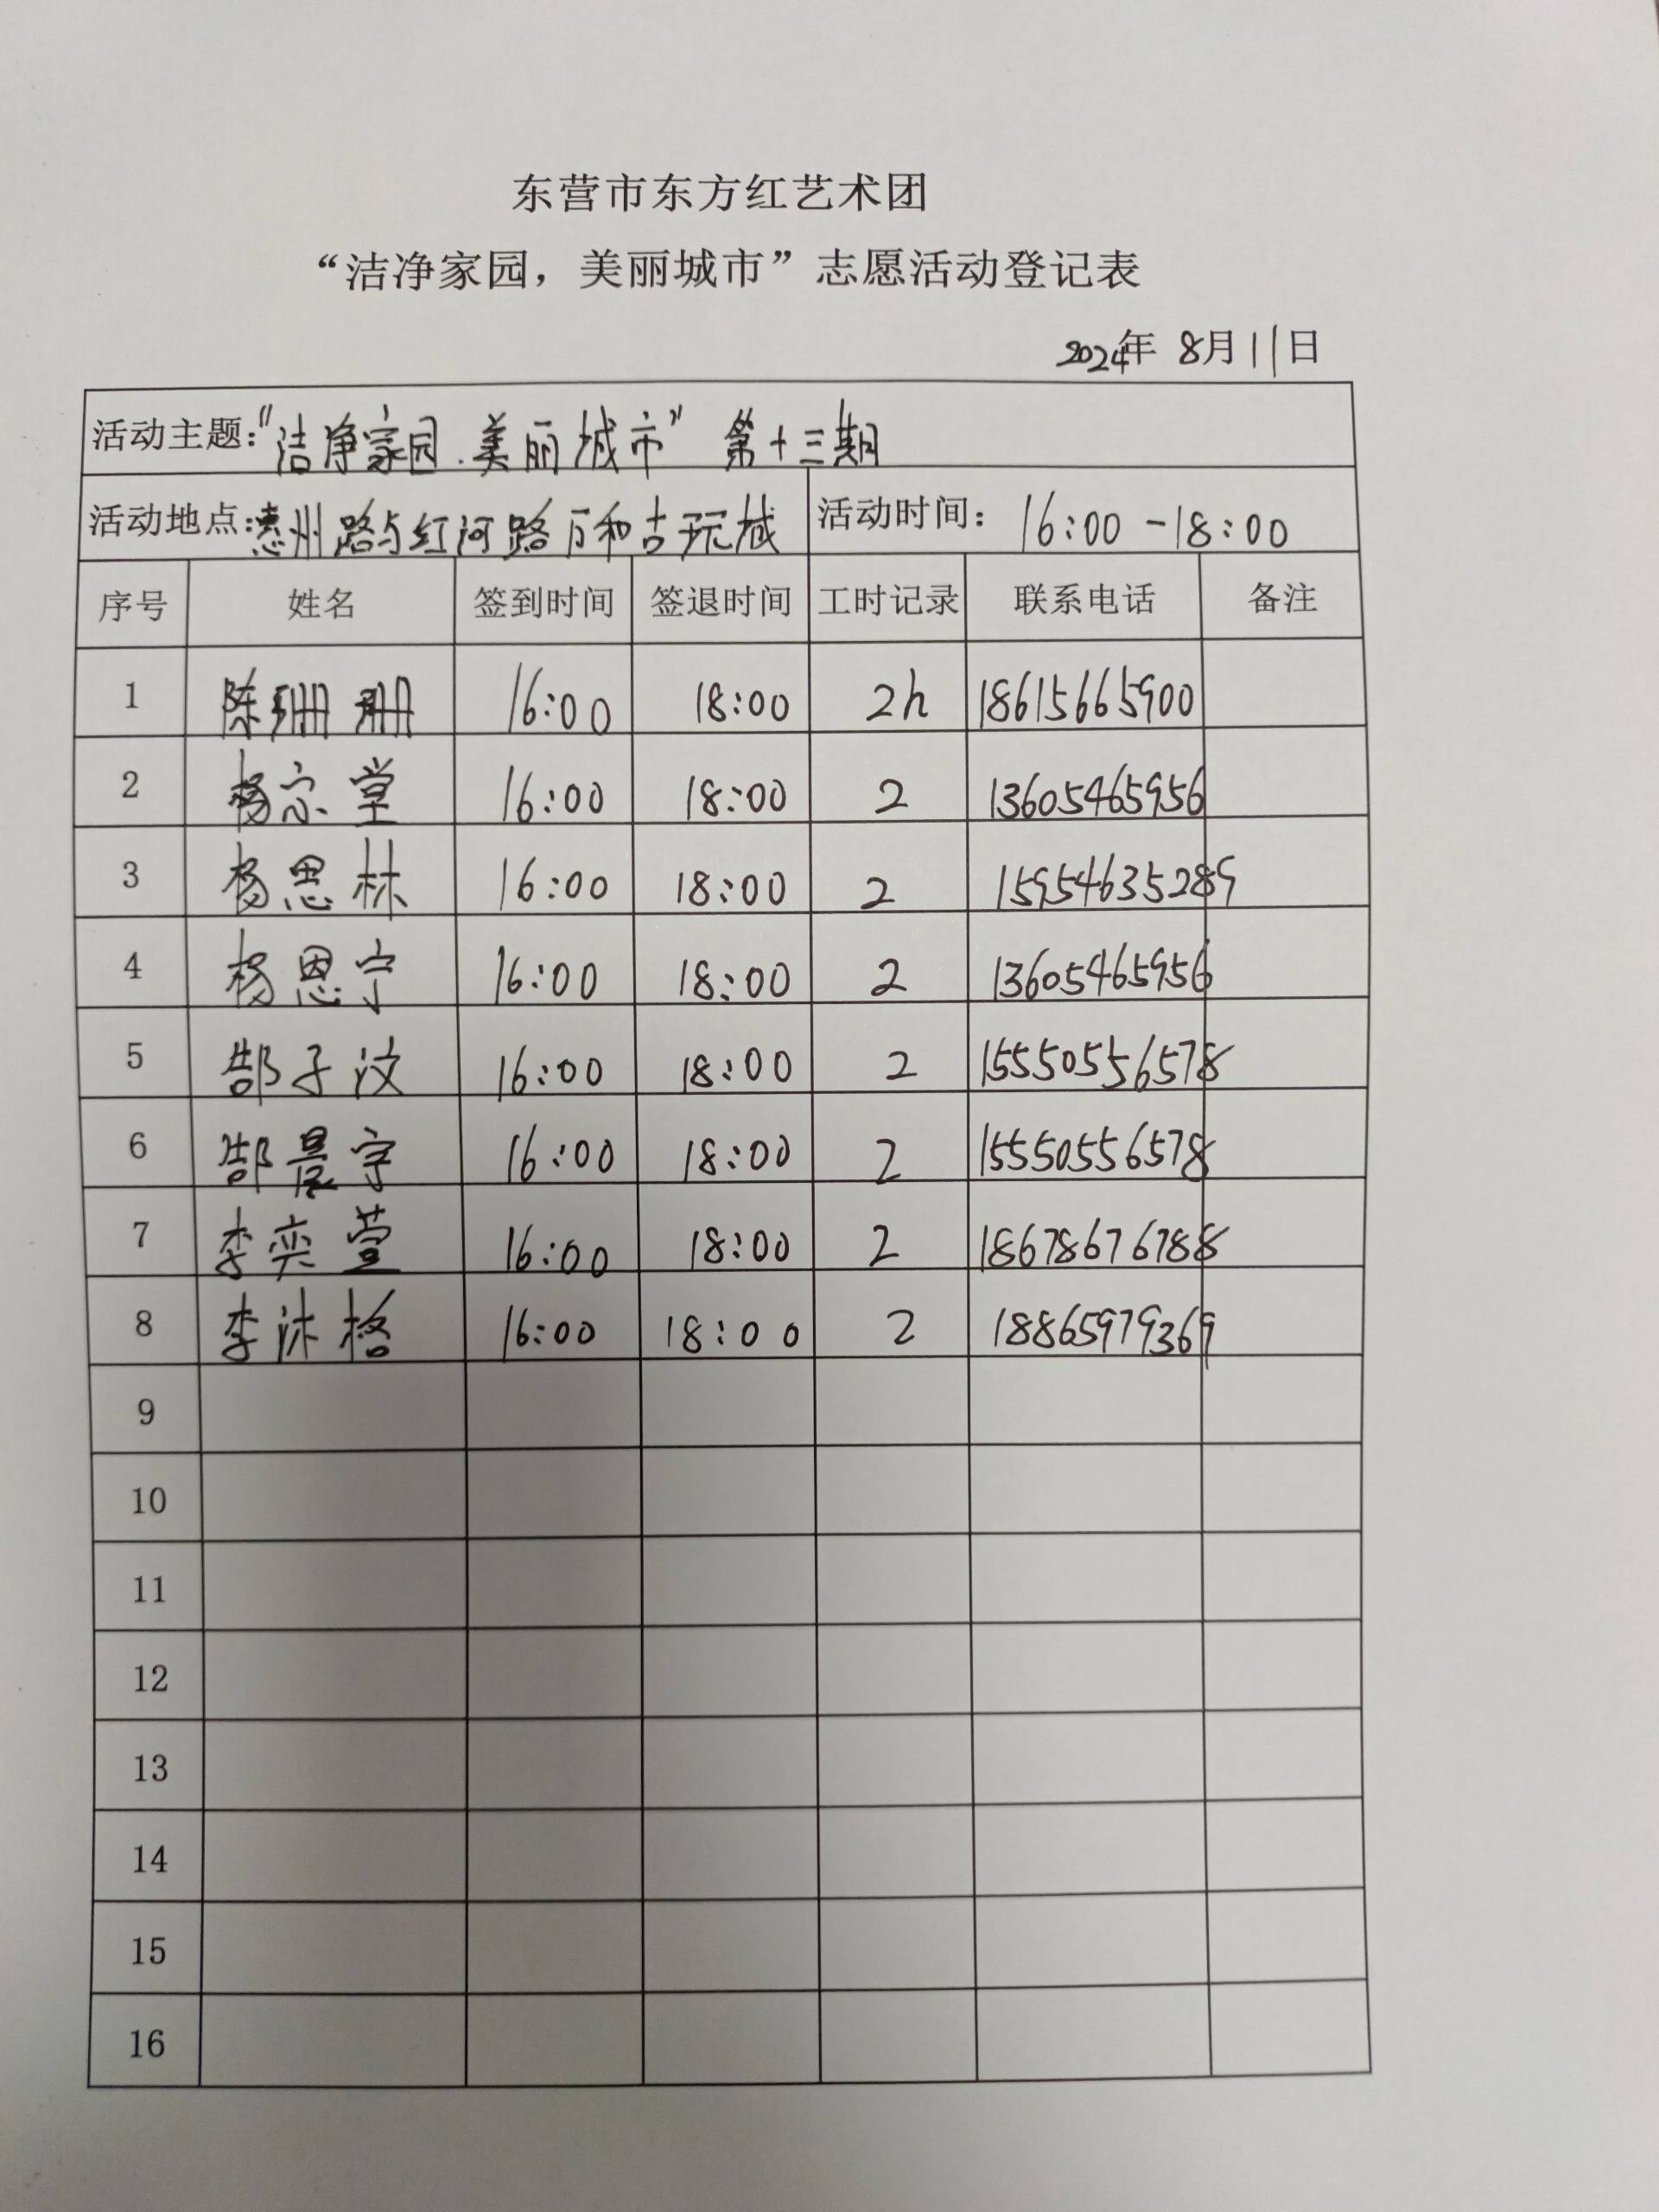 东营市东方红艺术团
“洁净家园，美丽城市”志愿活动登记表
2024年 8月11日
活动主题：“洁净家园.美丽城市”第十三期
活动地点：惠州路与红河路万和古玩城 活动时间：16:00-18:00
序号 姓名 签到时间 签退时间 工时记录 联系电话 备注
1 陈珊珊 16:00 18:00 2h 18615665900
2 杨宗堂 16:00 18:00 2 13605465956
3 杨思林 16:00 18:00 2 15954635289
4 杨恩宁 16:00 18:00 2 13605465956
5 郜子汶 16:00 18:00 2 15550556578
6 郜晨宇 16:00 18:00 2 15550556578
7 李奕萱 16:00 18:00 2 18678676788
8 李沐格 16:00 18:00 2 18865979369
9
10
11
12
13
14
15
16